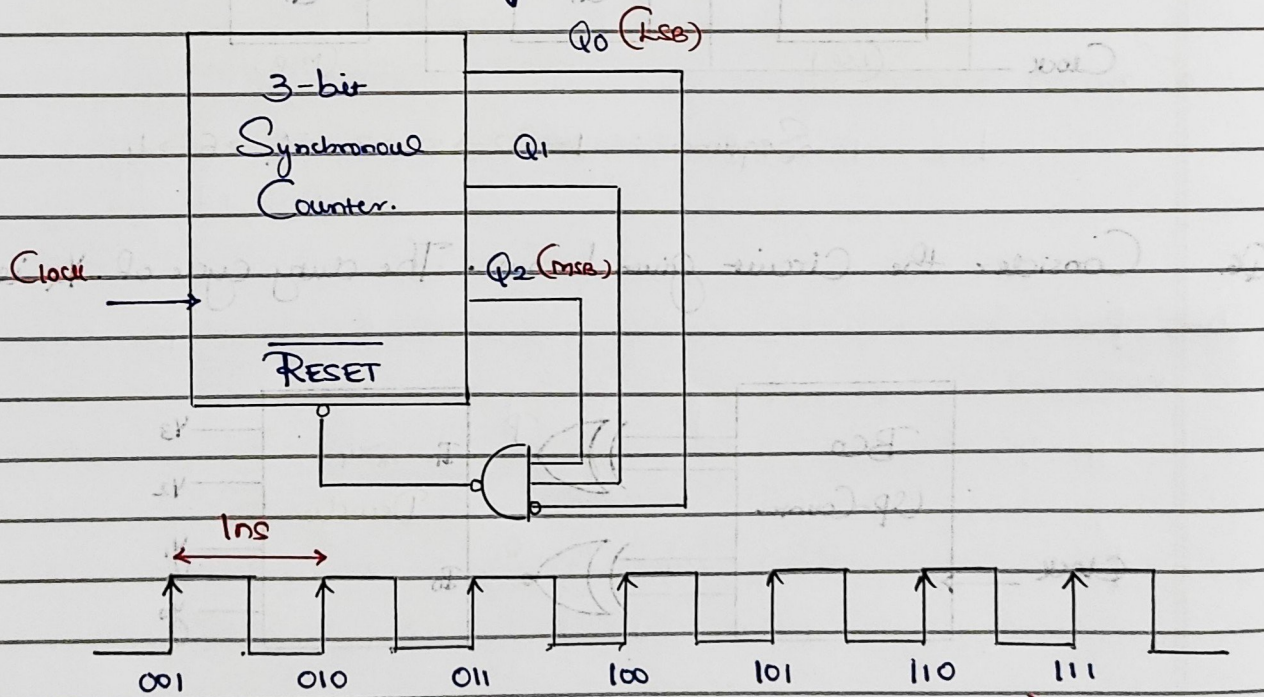 Q0 (LSB)
3-bit
Synchronoul
Counter.
Q1
Q2 (MSB)
Clock
RESET
1ns
001 010 011 100 101 110 111